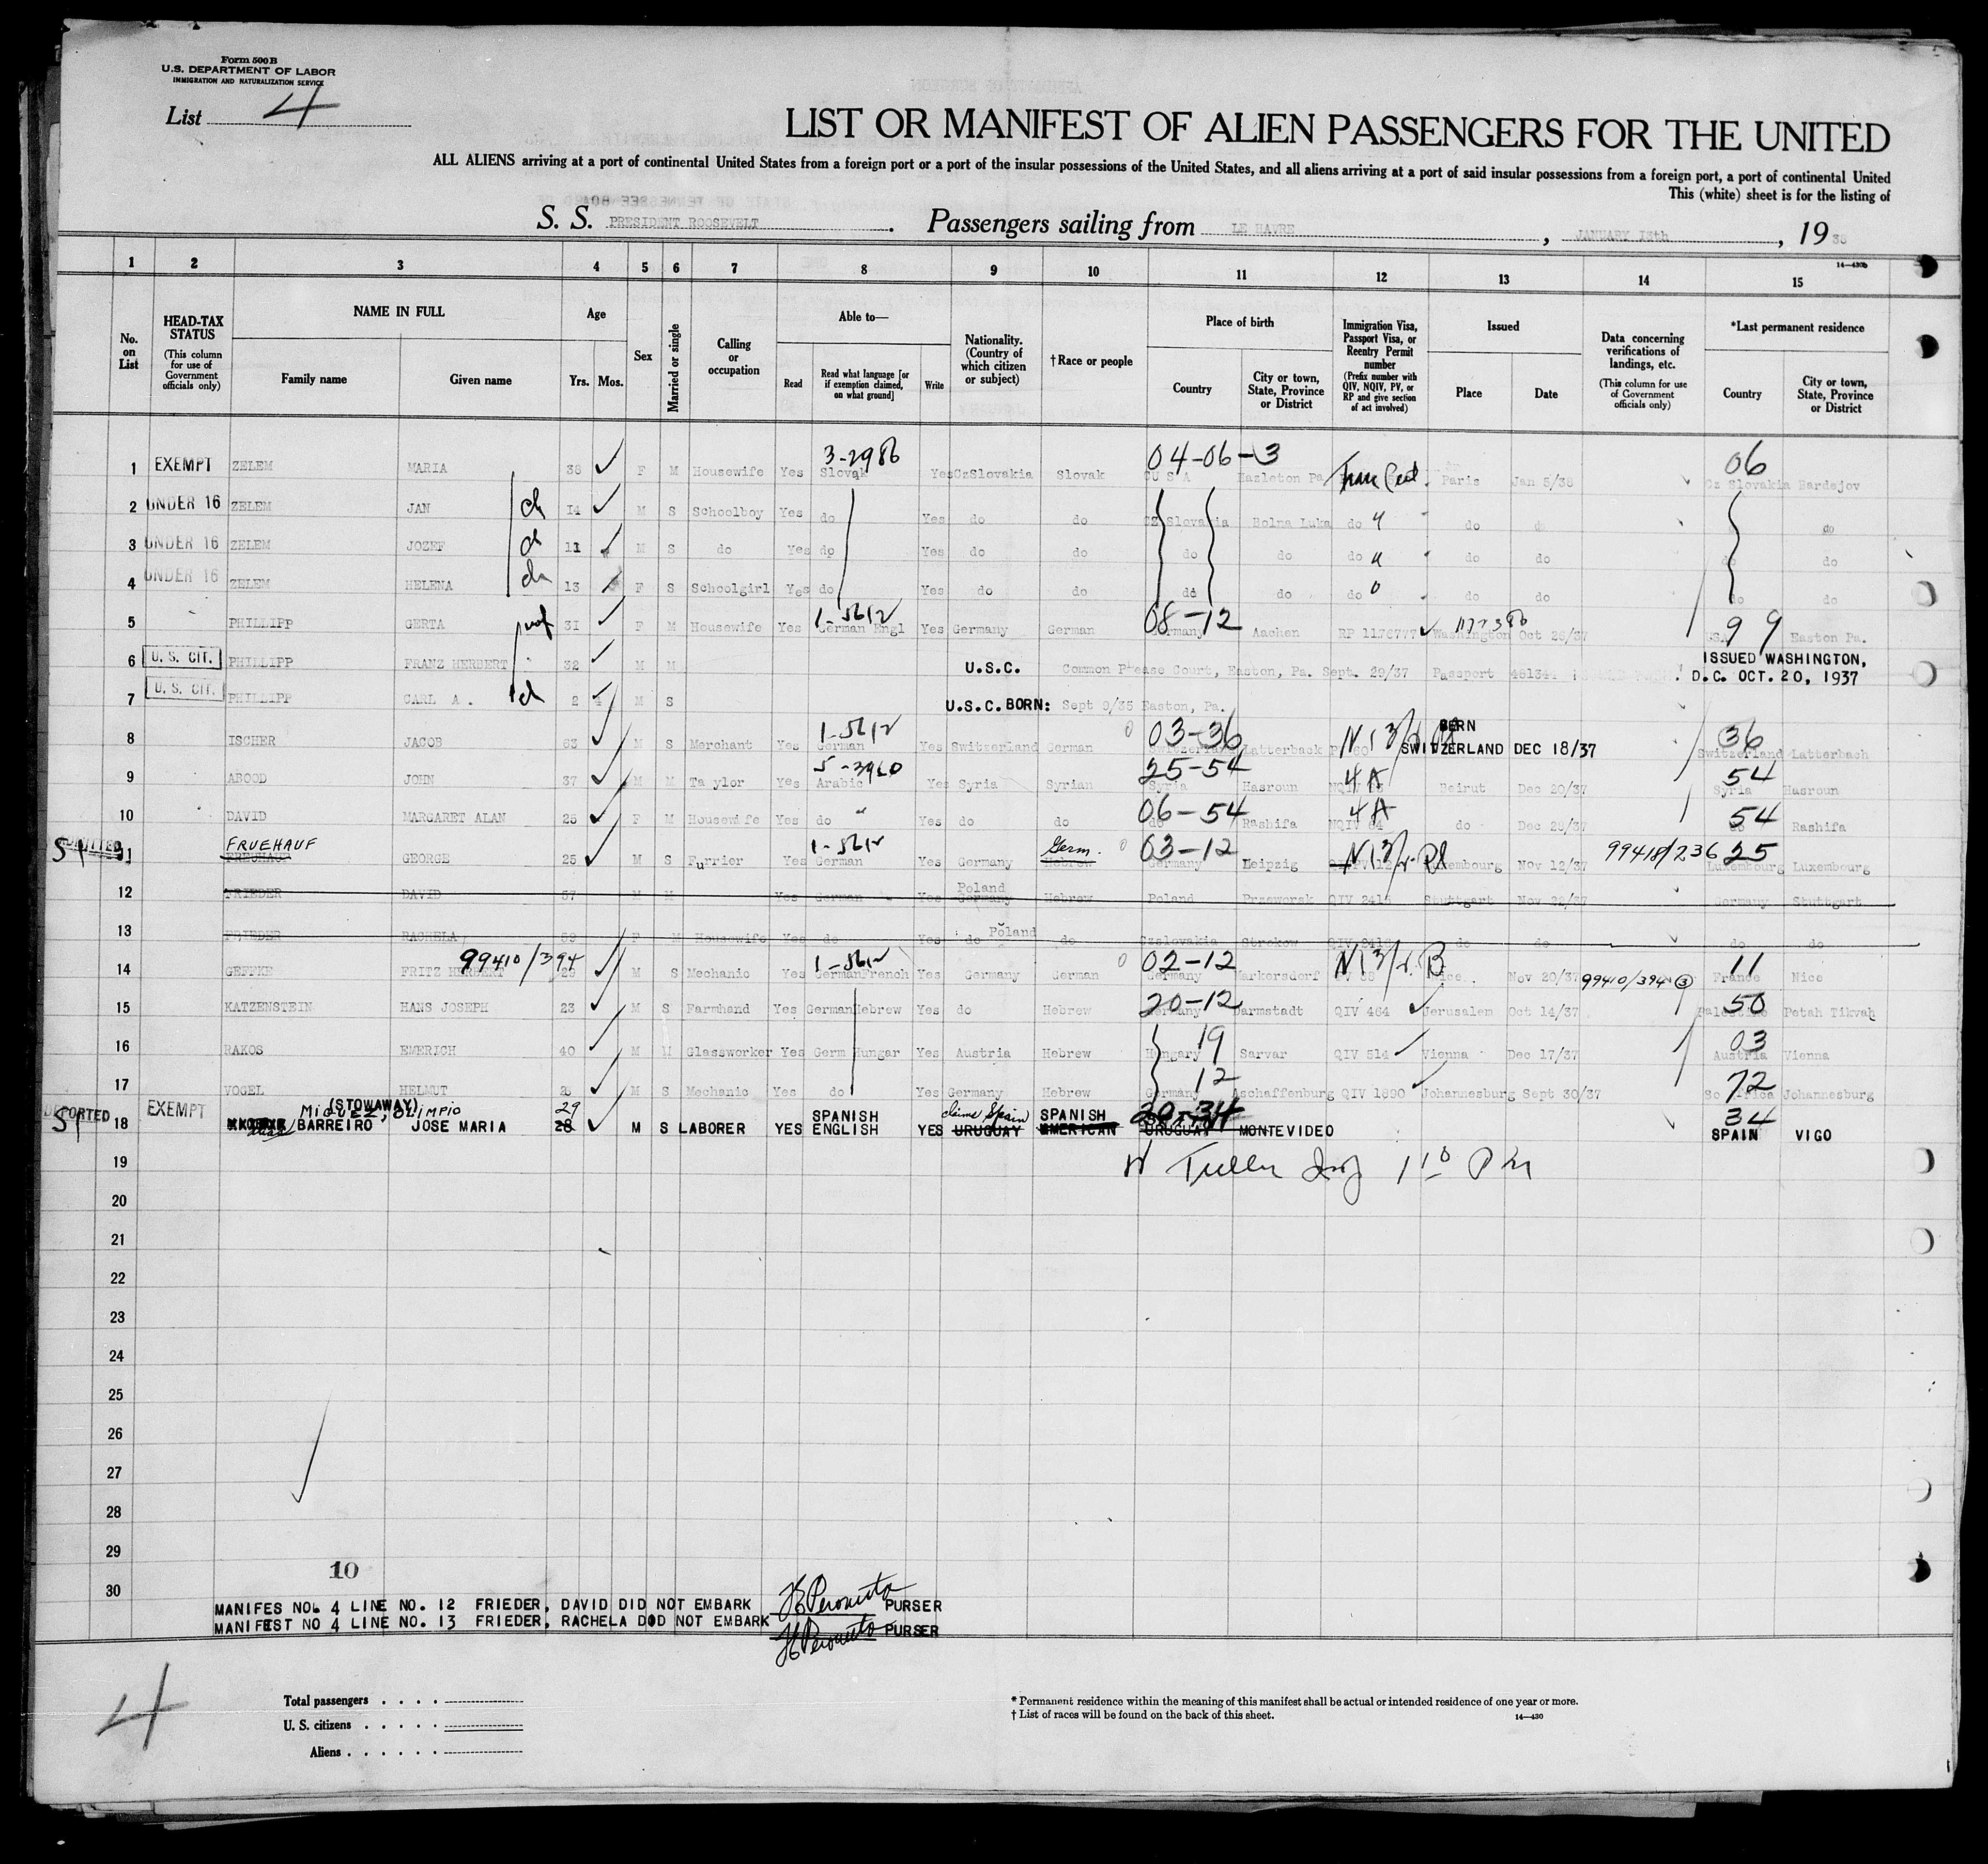 Form 500B
U.S. DEPARTMENT OF LABOR
IMMIGRATION AND NATURALIZATION SERVICE
List 4
LIST OR MANIFEST OF ALIEN PASSENGERS FOR THE UNITED
ALL ALIENS arriving at a port of continental United States from a foreign port or a port of the insular possessions of the United States, and all aliens arriving at a port of said insular possessions from a foreign port, a port of continental United
This (white) sheet is for the listing of
S. S. PRESIDENT ROOSEVELT. Passengers sailing from LE HAVRE, JANUARY 13th, 1938
1 2 3 4 5 6 7 8 9 10 11 12 13 14 15
14—430b
No. on List
HEAD-TAX STATUS
(This column for use of Government officials only)
NAME IN FULL
Family name
Given name
Age
Yrs. Mos.
Sex
Married or single
Calling or occupation
Able to—
Read
Read what language [or if exemption claimed, on what ground]
Write
Nationality. (Country of which citizen or subject)
†Race or people
Place of birth
Country
City or town, State, Province or District
Immigration Visa, Passport Visa, or Reentry Permit number
(Prefix number with QIV, NQIV, PV, or RP and give section of act involved)
Issued
Place
Date
Data concerning verifications of landings, etc.
(This column for use of Government officials only)
*Last permanent residence
Country
City or town, State, Province or District
3-2986 04-06-3 06
1 EXEMPT ZELEM MARIA 38 F M Housewife Yes Slovak Yes CzSlovakia Slovak U S A Hazleton Pa Paris Jan 5/38 Cz Slovakia Bardejov
2 UNDER 16 ZELEM JAN ch 14 M S Schoolboy Yes do Yes do do Cz Slovakia Holna Luka do do do do
3 UNDER 16 ZELEM JOZEF ch 11 M S do Yes do Yes do do do do do do do do do
4 UNDER 16 ZELEM HELENA ch 13 F S Schoolgirl Yes do Yes do do do do do do do do do
1-5612 08-12 99
5 PHILLIPP GERTA 31 F M Housewife Yes German Engl Yes Germany German Germany Aachen RP 1176777 Washington Oct 26/37 USA Easton Pa.
6 U. S. CIT. PHILLIPP FRANZ HERBERT 32 M M U.S.C. Common Please Court, Easton, Pa. Sept. 29/37 Passport 461344 ISSUED WASHINGTON,
D.C. OCT. 20, 1937
7 U. S. CIT. PHILLIPP CARL A. ch 2 4 M S U.S.C. BORN: Sept 9/35 Easton, Pa.
1-5612 03-36 BERN 36
8 ISCHER JACOB 63 M S Merchant Yes German Yes Switzerland German Switzerland Latterback SWITZERLAND DEC 18/37 Switzerland Latterbach
5-3960 25-54 4A 54
9 ABOOD JOHN 37 M M Taylor Yes Arabic Yes Syria Syrian Syria Hasroun Beirut Dec 20/37 Syria Hasroun
06-54 4A 54
10 DAVID MARGARET ALAN 25 F M Housewife Yes do Yes do do do Rashifa NQIV 64 do Dec 28/37 do Rashifa
FRUEHAUF 1-5612 Germ. 03-12 99418/236 25
11 FREUHAUF GEORGE 25 M S Furrier Yes German Yes Germany Hebrew Germany Leipzig Luxembourg Nov 12/37 Luxembourg Luxembourg
12 FRIEDER DAVID 57 M M Yes German Yes Poland Germany Hebrew Poland Przeworsk QIV 2415 Stuttgart Nov 22/37 Germany Stuttgart
13 FRIEDER RACHELA 59 F M Housewife Yes do Yes do Poland do Czslovakia Strokow QIV 2416 do do do do
99410/394 1-5612 02-12 11
14 GEFFKE FRITZ HERBERT 29 M S Mechanic Yes German French Yes Germany German Germany Markersdorf Nice Nov 20/37 99410/394 3 France Nice
20-12 50
15 KATZENSTEIN HANS JOSEPH 23 M S Farmhand Yes German Hebrew Yes do Hebrew Germany Darmstadt QIV 464 Jerusalem Oct 14/37 Palestine Petah Tikvah
19 03
16 RAKOS EMERICH 40 M M Glassworker Yes Germ Hungar Yes Austria Hebrew Hungary Sarvar QIV 514 Vienna Dec 17/37 Austria Vienna
12 72
17 VOGEL HELMUT M S Mechanic Yes do Yes Germany Hebrew Germany Aschaffenburg QIV 1890 Johannesburg Sept 30/37 So Africa Johannesburg
DEPORTED EXEMPT (STOWAWAY) MIGUEZ, OLIMPIO 29 SPANISH claims Spain SPANISH 20-34 34
18 alias BARREIRO JOSE MARIA 28 M S LABORER YES ENGLISH YES URUGUAY AMERICAN URUGUAY MONTEVIDEO SPAIN VIGO
19
20
21
22
23
24
25
26
27
28
29
10
30
MANIFES NO. 4 LINE NO. 12 FRIEDER, DAVID DID NOT EMBARK PURSER
MANIFEST NO 4 LINE NO. 13 FRIEDER, RACHELA DOD NOT EMBARK PURSER
4
Total passengers . . . .
U. S. citizens . . . . .
Aliens . . . . . .
* Permanent residence within the meaning of this manifest shall be actual or intended residence of one year or more.
† List of races will be found on the back of this sheet.
14—430